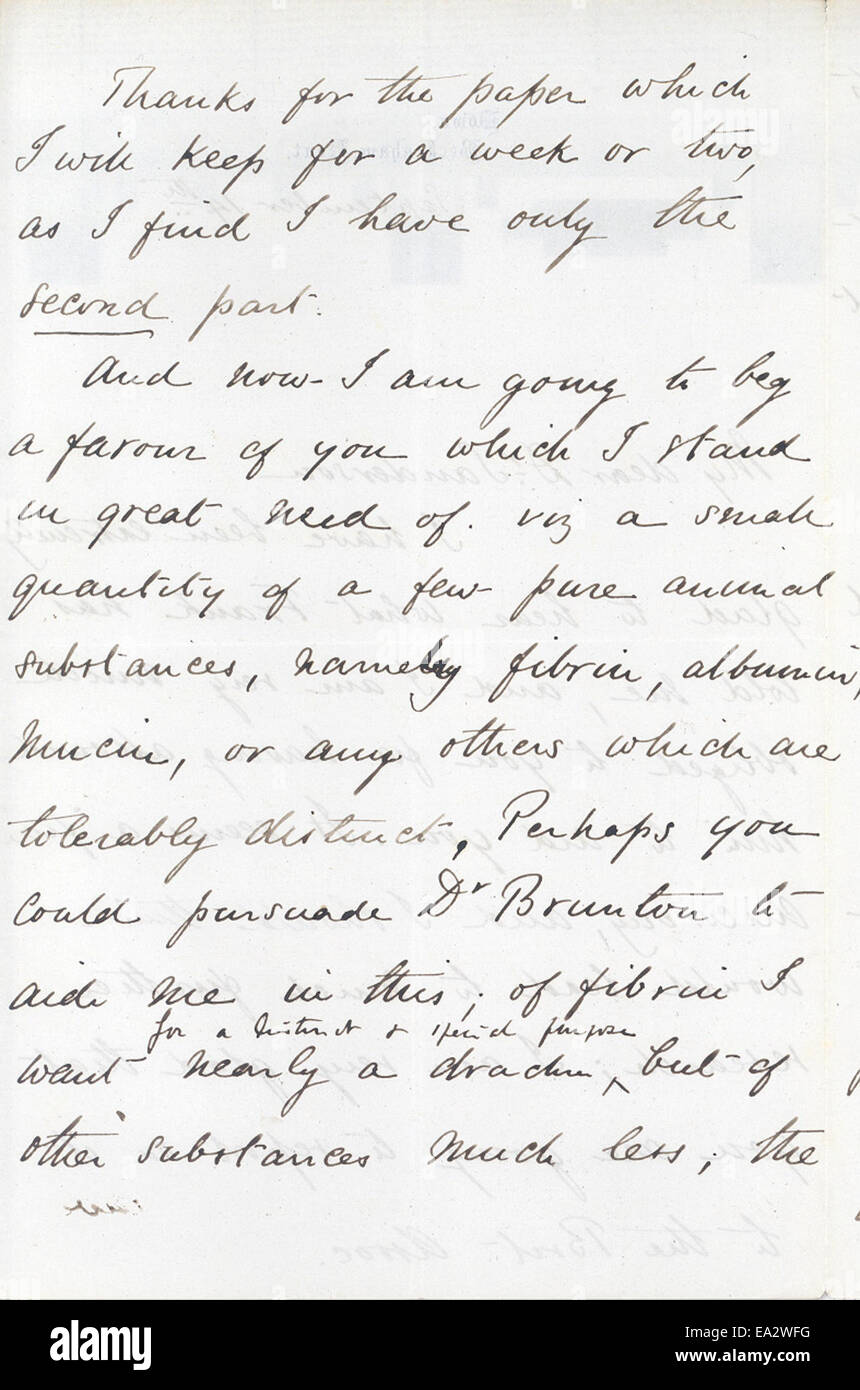 Thanks for the paper which
I will keep for a week or two,
as I find I have only the
second part.
And now I am going to beg
a favour of you which I stand
in great need of. viz a small
quantity of a few pure animal
substances, namely fibrin, albumin,
mucin, or any others which are
tolerably distinct. Perhaps you
could pursuade Dr Brunton to
aide me in this; of fibrin I
for a distinct & special purpose
want nearly a drachm, but of
other substances much less; the
alamy
Image ID: EA2WFG
www.alamy.com